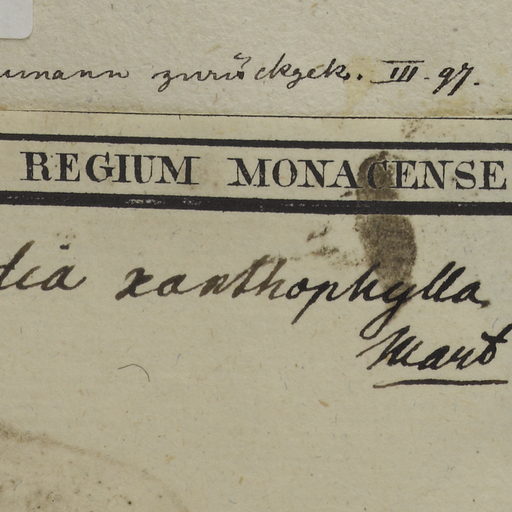 umann zurückgek. III. 97.
REGIUM MONACENSE
dia xanthophylla
Mart